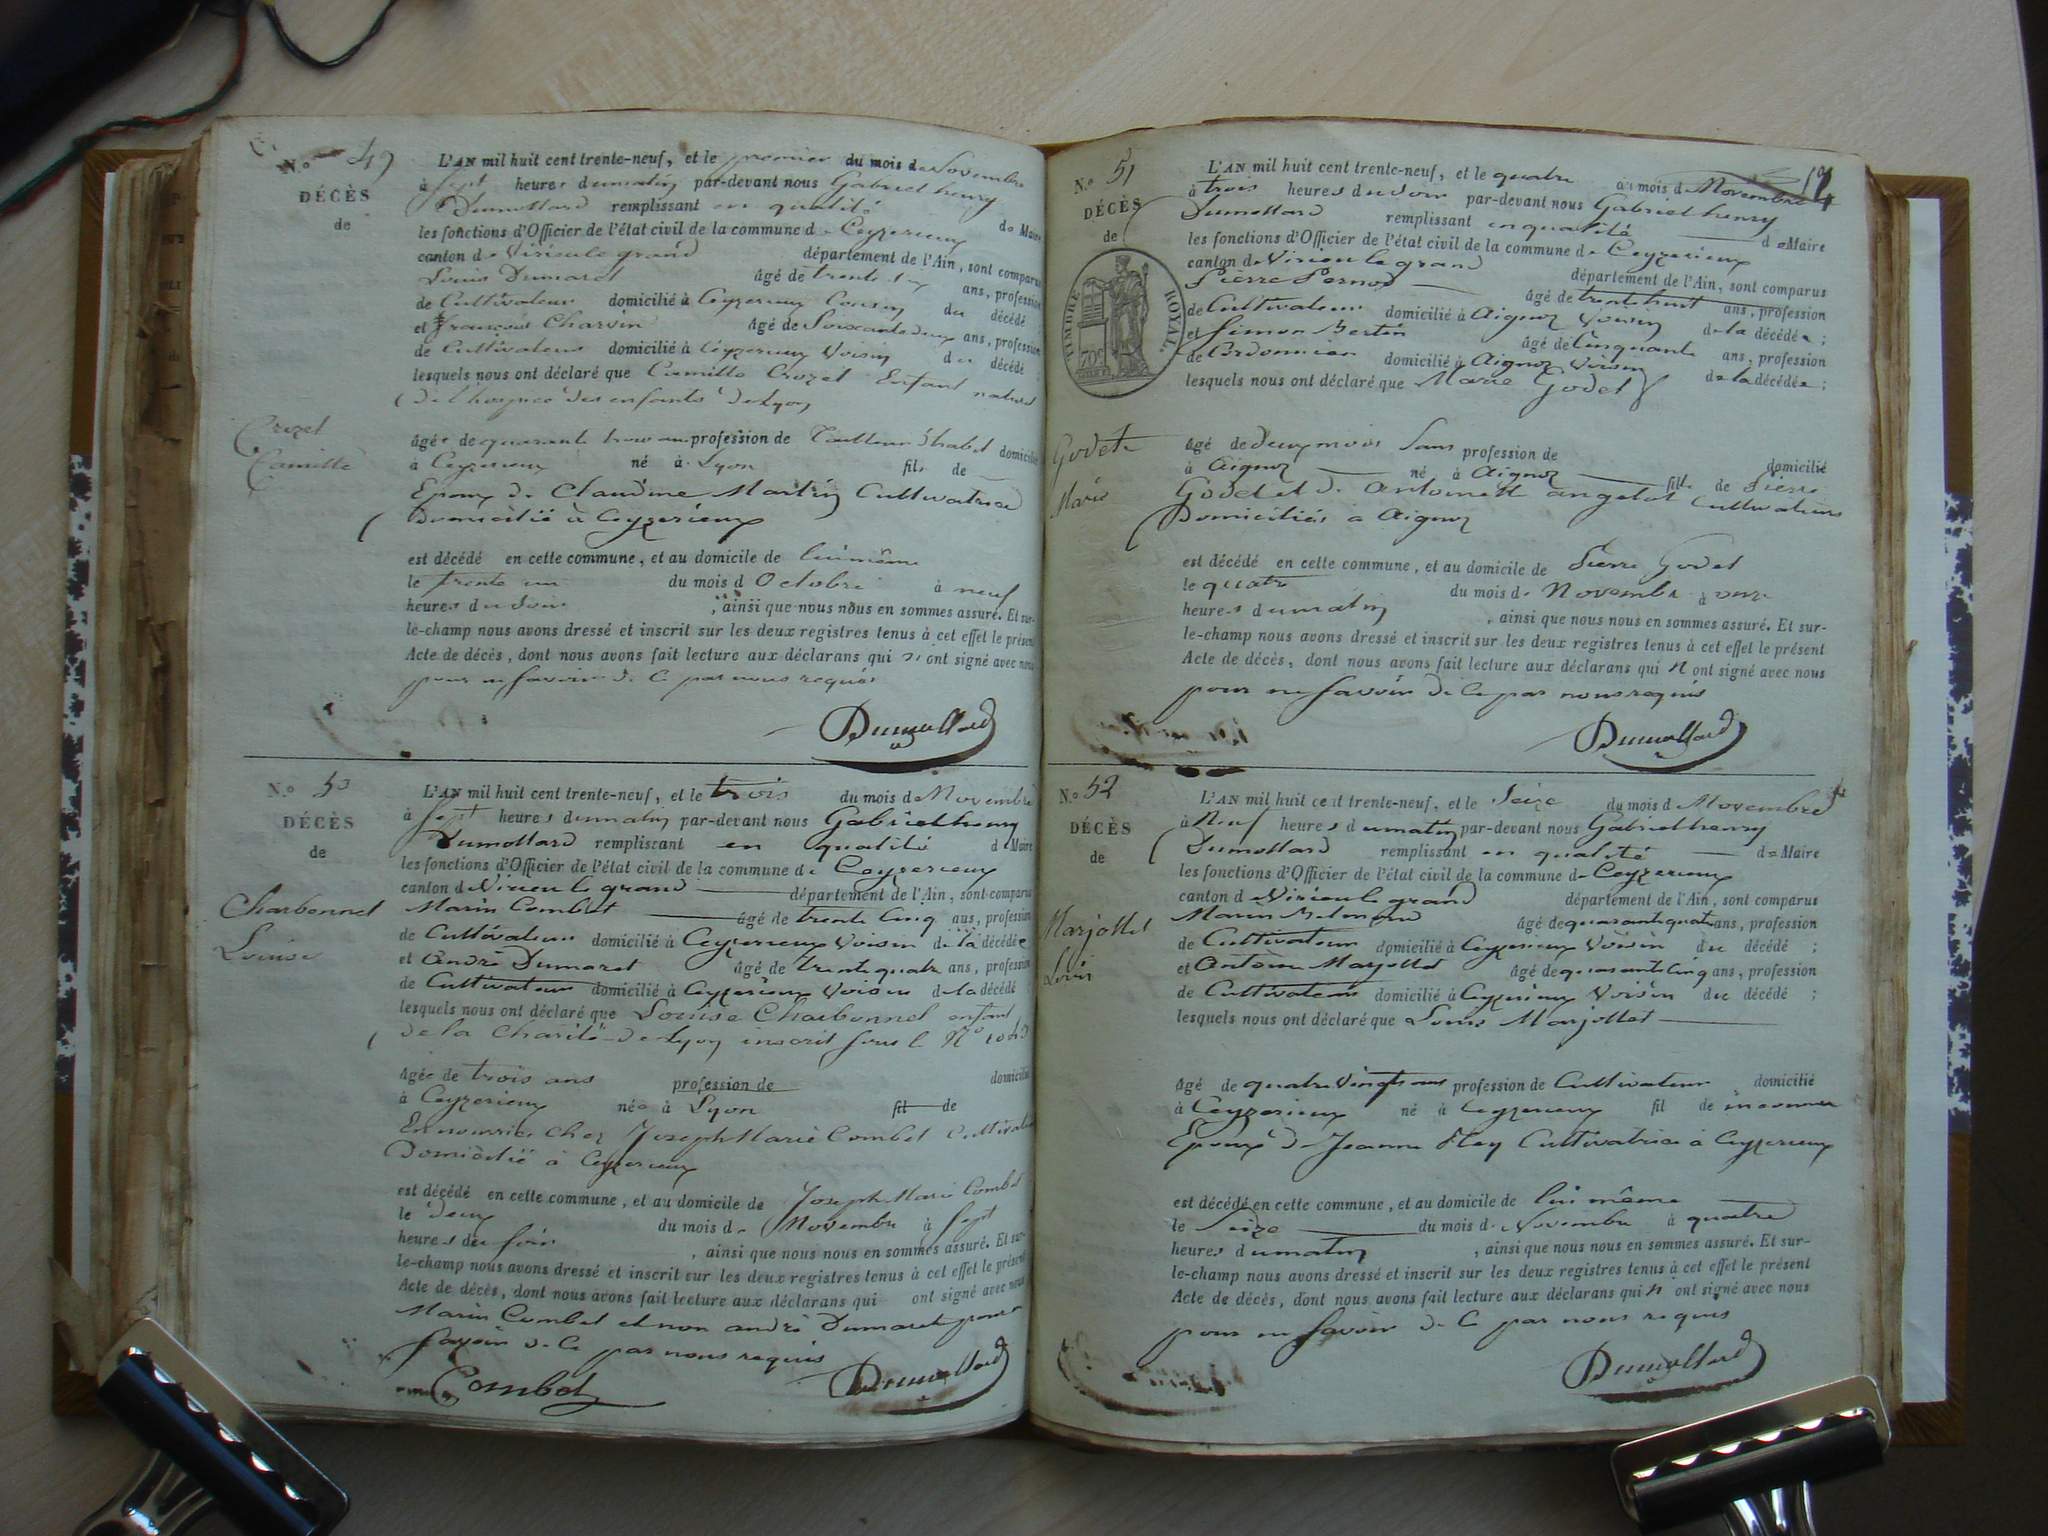 N.º 49
DÉCÈS
de
Crozet
Camille
L'AN mil huit cent trente-neuf, et le premier du mois de Novembre
à sept heures du matin par-devant nous Gabriel henry
Dumollard remplissant en qualité de Maire
les fonctions d'Officier de l'état civil de la commune de Ceyzerieux
canton de Virieu le grand département de l'Ain, sont comparus
Louis Dumaret âgé de trente ans, profession
de Cultivateur domicilié à Ceyzerieux Cousin du décédé
et françois Charvin âgé de Soixante deux ans, profession
de Cultivateur domicilié à Ceyzerieux Voisin du décédé
lesquels nous ont déclaré que Camille Crozet Enfant naturel
de l'hospice des enfants de Lyon
âgé de quarante trois ans profession de Tailleur d'habit domicilié
à Ceyzerieux né à Lyon fils de
Epoux de Claudine Martin Cultivatrice
Domicilié à Ceyzerieux
est décédé en cette commune, et au domicile de lui même
le trente un du mois d Octobre à neuf
heures du Soir, ainsi que nous nous en sommes assuré. Et sur-
le-champ nous avons dressé et inscrit sur les deux registres tenus à cet effet le présent
Acte de décès, dont nous avons fait lecture aux déclarans qui n'ont signé avec nous
pour ne savoir de ce par nous requis
Dumollard
N.º 50
DÉCÈS
de
Charbonnel
Louise
L'AN mil huit cent trente-neuf, et le trois du mois de Novembre
à sept heures du matin par-devant nous Gabriel henry
Dumollard remplissant en qualité de Maire
les fonctions d'Officier de l'état civil de la commune de Ceyzerieux
canton de Virieu le grand département de l'Ain, sont comparus
Marin Combet âgé de trente Cinq ans, profession
de Cultivateur domicilié à Ceyzerieux Voisin de la décédée
et andré Dumaret âgé de trente quatre ans, profession
de Cultivateur domicilié à Ceyzerieux Voisin de la décédé
lesquels nous ont déclaré que Louise Charbonnel enfant
de la Charité de Lyon inscrit sous le N.º
âgée de trois ans profession de domicilié
à Ceyzerieux née à Lyon fil de
En nourrice chez Joseph Marie Combet Cultivateur
Domicilié à Ceyzerieux
est décédé en cette commune, et au domicile de Joseph Marie Combet
le deux du mois de Novembre à sept
heures du soir, ainsi que nous nous en sommes assuré. Et sur-
le-champ nous avons dressé et inscrit sur les deux registres tenus à cet effet le présent
Acte de décès, dont nous avons fait lecture aux déclarans qui ont signé avec nous
Marin Combet et non andré Dumaret pour ne
savoir de ce par nous requis
Combet Dumollard
N.º 51
DÉCÈS
de
TIMBRE ROYAL.
70c
Godet
Marie
L'AN mil huit cent trente-neuf, et le quatre du mois de Novembre
à trois heures du Soir par-devant nous Gabriel henry
Dumollard remplissant en qualité de Maire
les fonctions d'Officier de l'état civil de la commune de Ceyzerieux
canton de Virieu le grand département de l'Ain, sont comparus
Pierre Pernod âgé de trente huit ans, profession
de Cultivateur domicilié à Aignoz Voisin de la décédée;
et Simon Bertin âgé de Cinquante ans, profession
de Cordonnier domicilié à Aignoz Voisin de la décédée;
lesquels nous ont déclaré que Marie Godet
âgé de deux mois Sans profession de domicilié
à Aignoz né à Aignoz fille de Pierre
Godet et de Antoinette angelot Cultivateurs
Domiciliés à Aignoz
est décédé en cette commune, et au domicile de Pierre Godet
le quatre du mois de Novembre à onze
heures du matin, ainsi que nous nous en sommes assuré. Et sur-
le-champ nous avons dressé et inscrit sur les deux registres tenus à cet effet le présent
Acte de décès, dont nous avons fait lecture aux déclarans qui n'ont signé avec nous
pour ne savoir de ce par nous requis
Dumollard
N.º 52
DÉCÈS
de
Marjollet
Louis
L'AN mil huit cent trente-neuf, et le Seize du mois d Novembre
à Neuf heures du matin par-devant nous Gabriel henry
Dumollard remplissant en qualité de Maire
les fonctions d'Officier de l'état civil de la commune de Ceyzerieux
canton de Virieu le grand département de l'Ain, sont comparus
Marin âgé de quarante quatre ans, profession
de Cultivateur domicilié à Ceyzerieux Voisin du décédé;
et Antoine Marjollet âgé de quarante Cinq ans, profession
de Cultivateur domicilié à Ceyzerieux Voisin du décédé;
lesquels nous ont déclaré que Louis Marjollet
âgé de quatre Vingts ans profession de Cultivateur domicilié
à Ceyzerieux né à Ceyzerieux fil de inconnu
Epoux de Jeanne Cultivatrice à Ceyzerieux
est décédé en cette commune, et au domicile de lui même
le Seize du mois de Novembre à quatre
heures du matin, ainsi que nous nous en sommes assuré. Et sur-
le-champ nous avons dressé et inscrit sur les deux registres tenus à cet effet le présent
Acte de décès, dont nous avons fait lecture aux déclarans qui n'ont signé avec nous
pour ne savoir de ce par nous requis
Dumollard